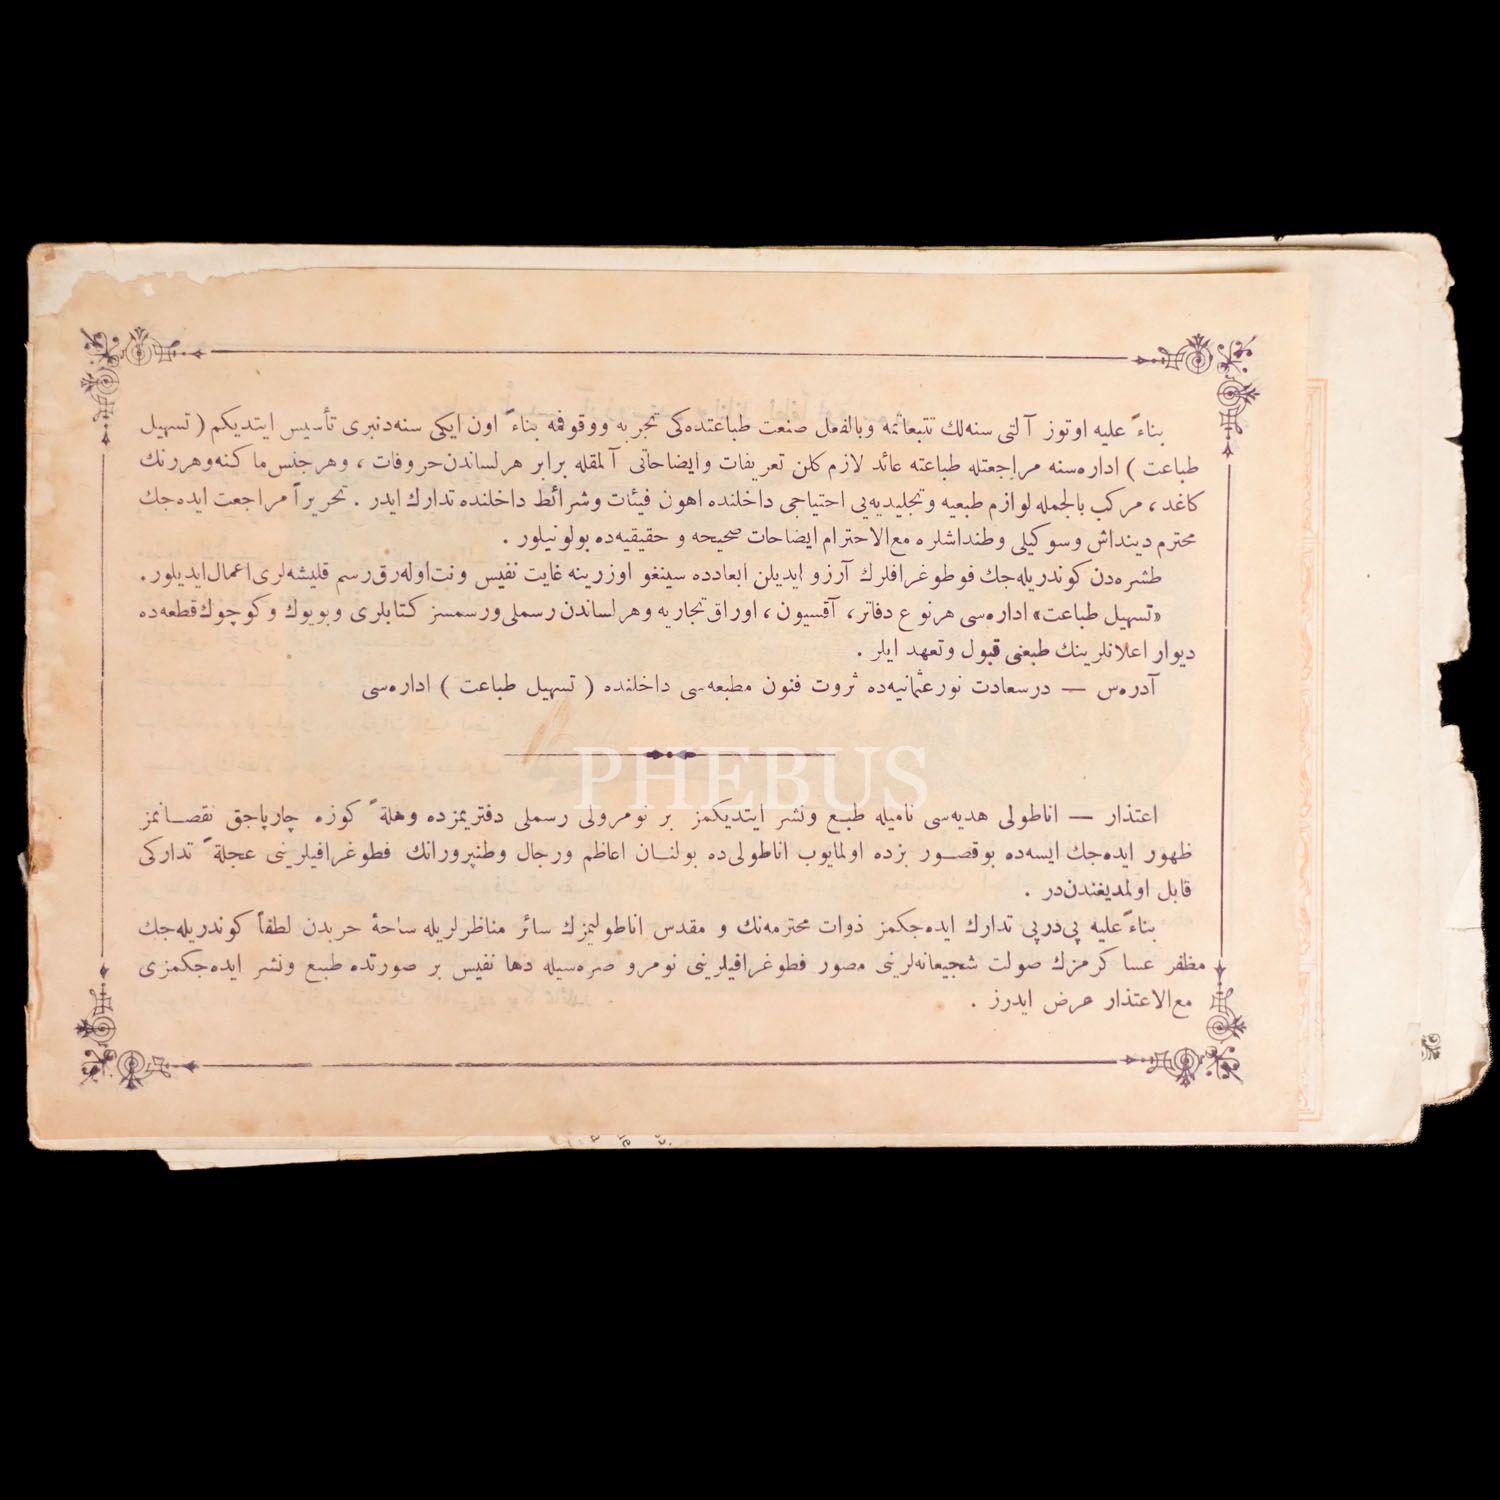 بناءً عليه اوتوز آلتى سنه‌لك تتبعاتمه وبالفعل صنعت طباعتده‌كى تجربه ووقوفمه بناءً اون ايكى سنه‌دنبرى تأسيس ايتديكم ( تسهيل
طباعت ) اداره‌سنه مراجعتله طباعته عائد لازم كلن تعريفات وايضاحاتى آلمقله برابر هر لساندن حروفات ، وهر جنس ماكنه وهر رنك
كاغد ، مركب بالجمله لوازم طبعيه وتجليديه‌يى احتياجى داخلنده اهون فيئات وشرائط داخلنده تدارك ايدر . تحريراً مراجعت ايده‌جك
محترم دينداش وسوكيلى وطنداشلره مع‌الاحترام ايضاحات صحيحه و حقيقيه‌ده بولونيلور .
طشره‌دن كوندريله‌جك فوطوغرافلرك آرزو ايديلن ابعادده سينغو اوزرينه غايت نفيس ونت اوله‌رق رسم قليشه‌لرى اعمال ايديلور .
«تسهيل طباعت» اداره‌سى هرنوع دفاتر ، آقسيون ، اوراق تجاريه وهر لساندن رسملى ورسمسز كتابلرى وبويوك وكوچوك قطعه‌ده
ديوار اعلانلرينك طبعنى قبول وتعهد ايلر .
آدره‌س — درسعادت نورعثمانيه‌ده ثروت فنون مطبعه‌سى داخلنده ( تسهيل طباعت ) اداره‌سى
PHEBUS
اعتذار — اناطولى هديه‌سى ناميله طبع ونشر ايتديكمز بر نومرولى رسملى دفتريمزده وهلةً كوزه چارپاجق نقصانمز
ظهور ايده‌جك ايسه‌ده بوقصور بزده اولمايوب اناطولى‌ده بولنان اعاظم ورجال وطنپرورانك فطوغرافيلرينى عجلةً تداركى
قابل اولمديغندن‌در .
بناءً عليه پى‌درپى تدارك ايده‌جكمز ذوات محترمه‌نك و مقدس اناطوليمزك سائر مناظرلريله ساحهٔ حربدن لطفاً كوندريله‌جك
مظفر عساكرمزك صولت شجيعانه‌لرينى مصور فطوغرافيلرينى نومرو صره‌سيله دها نفيس بر صورتده طبع ونشر ايده‌جكمزى
مع‌الاعتذار عرض ايدرز .